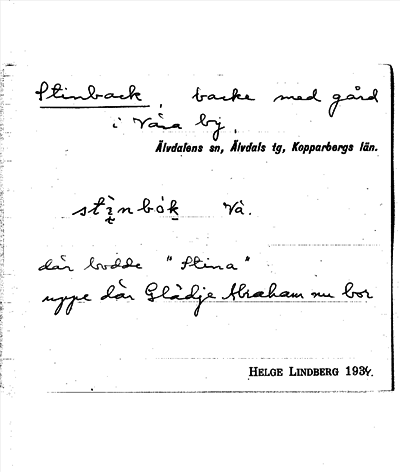 Stinback, backe med gård
i Våsa by,
Älvdalens sn, Älvdals tg, Kopparbergs län.
stìnbók Vå.
där bodde "Stina"
uppe där Glädje Abraham nu bor
HELGE LINDBERG 1934.